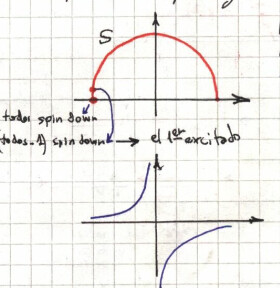 S
todos spin down
(todos-1) spin down → el 1er excitado